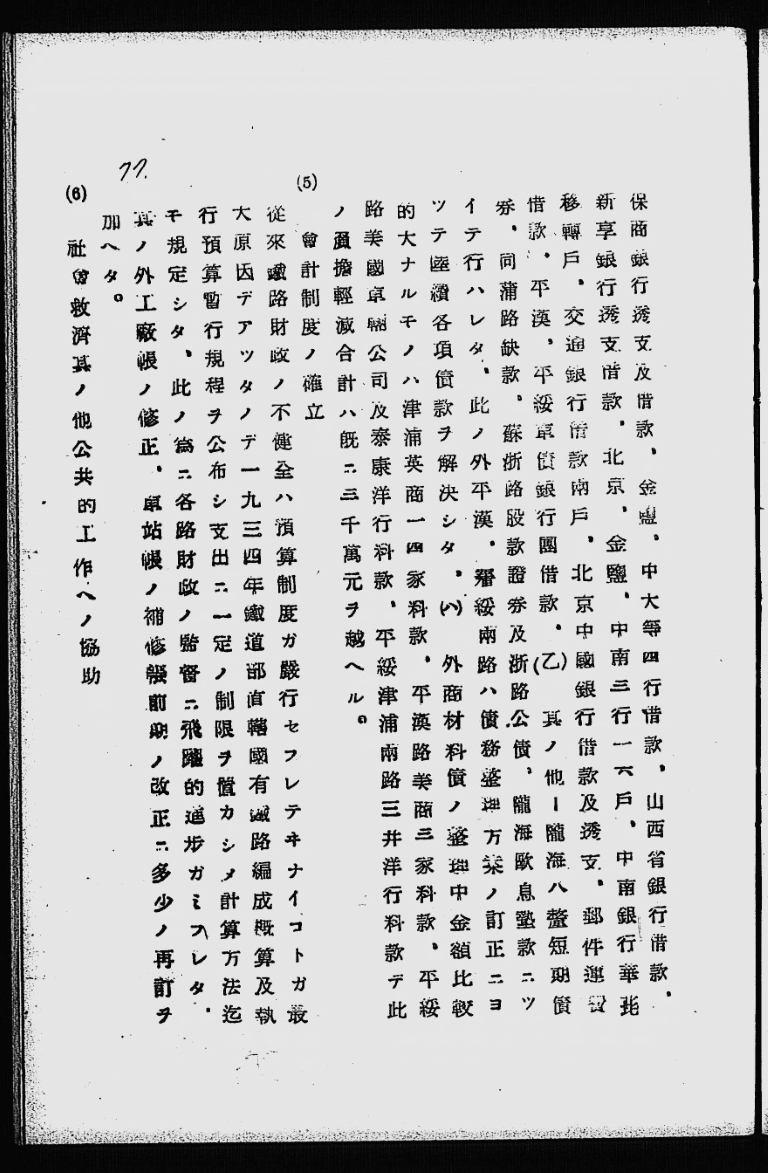 保商銀行透支及借款、金鹽、中大等四行借款、山西省銀行借款、
新享銀行透支借款、北京、金鹽、中南三行一六戶、中南銀行華北
移轉戶、交通銀行借款兩戶、北京中國銀行借款及透支、郵件運費
借款、平漢、平綏車債銀行團借款、(乙)其ノ他ー隴海八釐短期債
券、同蒲路缺款、蘇浙路股款證券及浙路公債、隴海歐息墊款ニツ
イテ行ハレタ、此ノ外平漢、平綏兩路ハ債務整理方案ノ訂正ニヨ
ツテ陸續各項債款ヲ解決シタ、(ハ)外商材料債ノ整理中金額比較
的大ナルモノハ津浦英商一四家料款、平漢路美商三家料款、平綏
路美國車輛公司及泰康洋行料款、平綏津浦兩路三井洋行料款デ此
ノ負擔輕減合計ハ既ニ三千萬元ヲ越ヘル。
(5)會計制度ノ確立
從來鐵路財政ノ不健全ハ預算制度ガ嚴行セラレテヰナイコトガ最
大原因デアツタノデ一九三四年鐵道部直轄國有鐵路編成概算及執
行預算暫行規程ヲ公布シ支出ニ一定ノ制限ヲ置カシメ計算方法迄
モ規定シタ、此ノ爲ニ各路財政ノ監督ニ飛躍的進步ガミラレタ、
其ノ外工廠帳ノ修正、車站帳ノ補修帳前期ノ改正ニ多少ノ再訂ヲ
加ヘタ。
77.
(6)社會救濟其ノ他公共的工作ヘノ協助